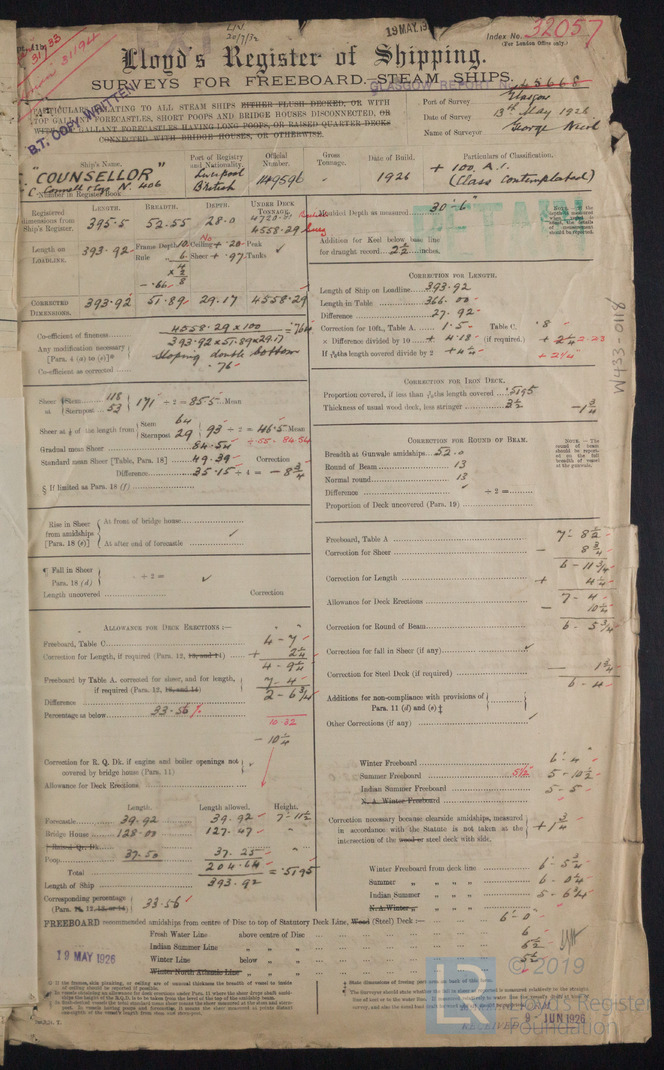 19 MAY 19
Index No. 32057
(For London Office only.)
Lloyd's Register of Shipping.
SURVEYS FOR FREEBOARD.—STEAM SHIPS.
GLASGOW REPORT No. 45668
B.T. COPY WRITTEN
PARTICULARS RELATING TO ALL STEAM SHIPS EITHER FLUSH DECKED, OR WITH
TOP GALLANT FORECASTLES, SHORT POOPS AND BRIDGE HOUSES DISCONNECTED, OR
WITH TOP GALLANT FORECASTLES HAVING LONG POOPS, OR RAISED QUARTER DECKS
CONNECTED WITH BRIDGE HOUSES, OR OTHERWISE.
Port of Survey Glasgow
Date of Survey 13th May 1926
Name of Surveyor George Nicol
Ship's Name.
"COUNSELLOR"
C. Connell & Co. No. 406
Number in Register Book
Port of Registry and Nationality.
Liverpool
British
Official Number.
149596
Gross Tonnage.
Date of Build.
1926
Particulars of Classification.
+ 100 A.1.
(Class Contemplated)
Registered dimensions from Ship's Register.
LENGTH. 395.5
BREADTH. 52.55
DEPTH. 28.0
UNDER DECK TONNAGE.
4558.29
Length on LOADLINE. 393.92
Frame Depth 10
Rule 6
Ceiling + .20
Sheer + .97
Peak Tanks
CORRECTED DIMENSIONS. 393.92 51.89 29.17 4558.29
Co-efficient of fineness 4558.29 x 100
393.92 x 51.89 x 29.17
Any modification necessary [Para. 4 (a) to (e)]* Sloping double bottom
Co-efficient as corrected .76
Moulded Depth as measured 30'-6"
DETAIN
Addition for Keel below base line
for draught record 2½ inches.
CORRECTION FOR LENGTH.
Length of Ship on Loadline 393.92
Length in Table 366.00
Difference 27.92
Correction for 10ft., Table A. 1.5 Table C. .8
× Difference divided by 10 + 4.18 (if required.) + 2¼ 2.23
If 6/10ths length covered divide by 2 + 4¼ + 2¼"
W433-0118
CORRECTION FOR IRON DECK.
Proportion covered, if less than 7/10ths length covered .5195
Thickness of usual wood deck, less stringer 3½ -1¾
Sheer at Stem 118
Sternpost 53
171 ÷ 2 = 85.5 Mean
Sheer at ⅛ of the length from Stem 64
Sternpost 29
93 ÷ 2 = 46.5 Mean
÷ .55 = 84.54
Gradual mean Sheer 84.54
Standard mean Sheer [Table, Para. 18] 49.39 Correction
Difference 35.15 ÷ 4 = - 8¾
§ If limited as Para. 18 (f)
CORRECTION FOR ROUND OF BEAM.
Breadth at Gunwale amidships 52.0
Round of Beam 13
Normal round 13
Difference ÷ 2 =
Proportion of Deck uncovered (Para. 19)
Rise in Sheer from amidships [Para. 18 (e)]
At front of bridge house
At after end of forecastle
¶ Fall in Sheer Para. 18 (d) ÷ 2 =
Length uncovered Correction
Freeboard, Table A 7- 8½
Correction for Sheer - 8¾
6 - 11¾
Correction for Length + 4¼
7 - 4
Allowance for Deck Erections - 10¼
6 - 5¾
Correction for Round of Beam
Correction for fall in Sheer (if any)
Correction for Steel Deck (if required) - 1¾
6 - 4
Additions for non-compliance with provisions of
Para. 11 (d) and (e) ‡
Other Corrections (if any)
ALLOWANCE FOR DECK ERECTIONS :—
Freeboard, Table C 4 - 7
Correction for Length, if required (Para. 12, 13, and 14) + 2¼
4 - 9¼
Freeboard by Table A. corrected for sheer, and for length,
if required (Para. 12, 13, and 14) 7 - 4
Difference 2 - 6¾
Percentage as below 33.56 %
10.32
- 10¼
Correction for R. Q. Dk. if engine and boiler openings not
covered by bridge house (Para. 11)
Allowance for Deck Erections
Length. Length allowed. Height.
Forecastle 39.92 39.92 7-11½
Bridge House 128.00 127.47 "
Raised Qr. Dk.
Poop 37.50 37.25 "
Total 204.64 = .5195
Length of Ship 393.92
Corresponding percentage (Para. 11, 12, 13, or 14) 33.56
Winter Freeboard 6 - 4
Summer Freeboard 5½ 5 - 10½
Indian Summer Freeboard 5 - 5
N. A. Winter Freeboard
Correction necessary because clearside amidships, measured
in accordance with the Statute is not taken at the
intersection of the wood or steel deck with side, + 1¾
Winter Freeboard from deck line 6 - 5¾
Summer " " " " 6 - 0¼
Indian Summer " " " " 5 - 6¾
N.A. Winter " " " "
FREEBOARD recommended amidships from centre of Disc to top of Statutory Deck Line, Wood (Steel) Deck :— 6'- 0"
Fresh Water Line above centre of Disc 6
Indian Summer Line " " 5½
Winter Line below " 5½
Winter North Atlantic Line " "
19 MAY 1926
© 2019
Lloyd's Register
Foundation
RECEIVED 9 - JUN 1926